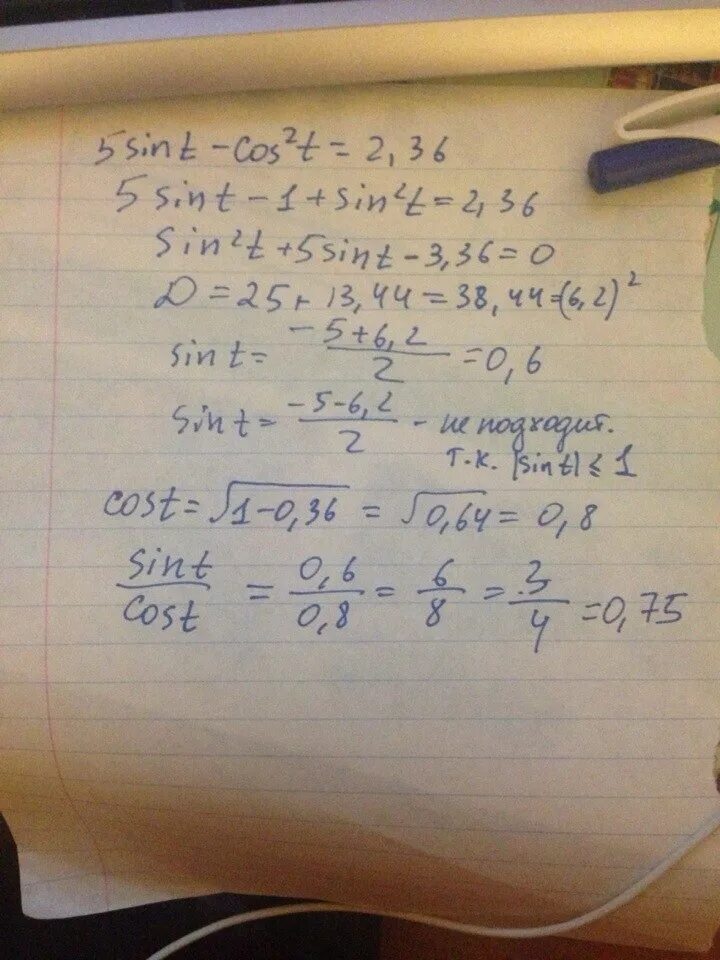 5 sin t - cos²t = 2,36
5 sin t - 1 + sin²t = 2,36
sin²t + 5 sin t - 3,36 = 0
D = 25 + 13,44 = 38,44 = (6,2)²
sin t = (-5+6,2)/2 = 0,6
sin t = (-5-6,2)/2 - не подходит.
т.к. |sin t| ≤ 1
cos t = √(1-0,36) = √(0,64) = 0,8
sin t/cos t = 0,6/0,8 = 6/8 = 3/4 = 0,75